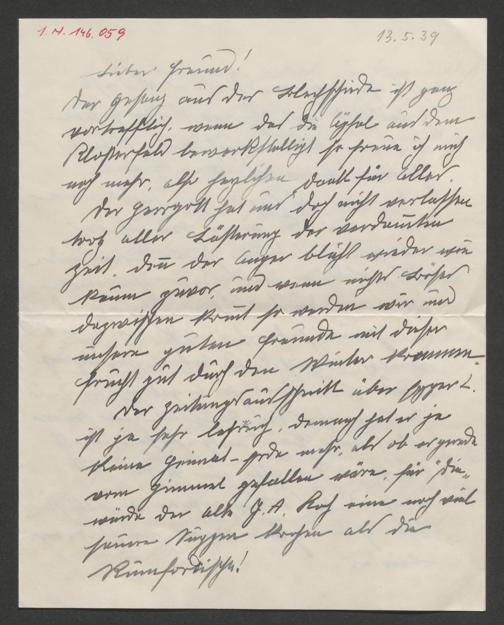 1.N.146.059
13.5.39
Lieber Freund!
Der Gesang aus der Blechschmiede ist ganz
vortrefflich, wenn das die Äpfel aus dem
Klosterfeld bewerkstelligt so freue ich mich
noch mehr, also herzlichen Dank für alles.
Der Herrgott hat uns doch nicht verlassen
trotz aller Lästerung der verdammten
Zeit. Denn der Anger blüht wieder wie
kaum zuvor, und wenn nichts Böses
dazwischen kommt so werden wir und
unsere guten Freunde mit dieser
Frucht gut durch den Winter kommen.
Der Zeitungsausschnitt über Egger L.
ist ja sehr lehrreich, demnach hat er ja
keine Heimat-Erde mehr, als ob er gerade
vom Himmel gefallen wäre, für "die"
würde der alte J.A. Koch eine noch viel
sauere Suppen kochen als die
Rumfordische!